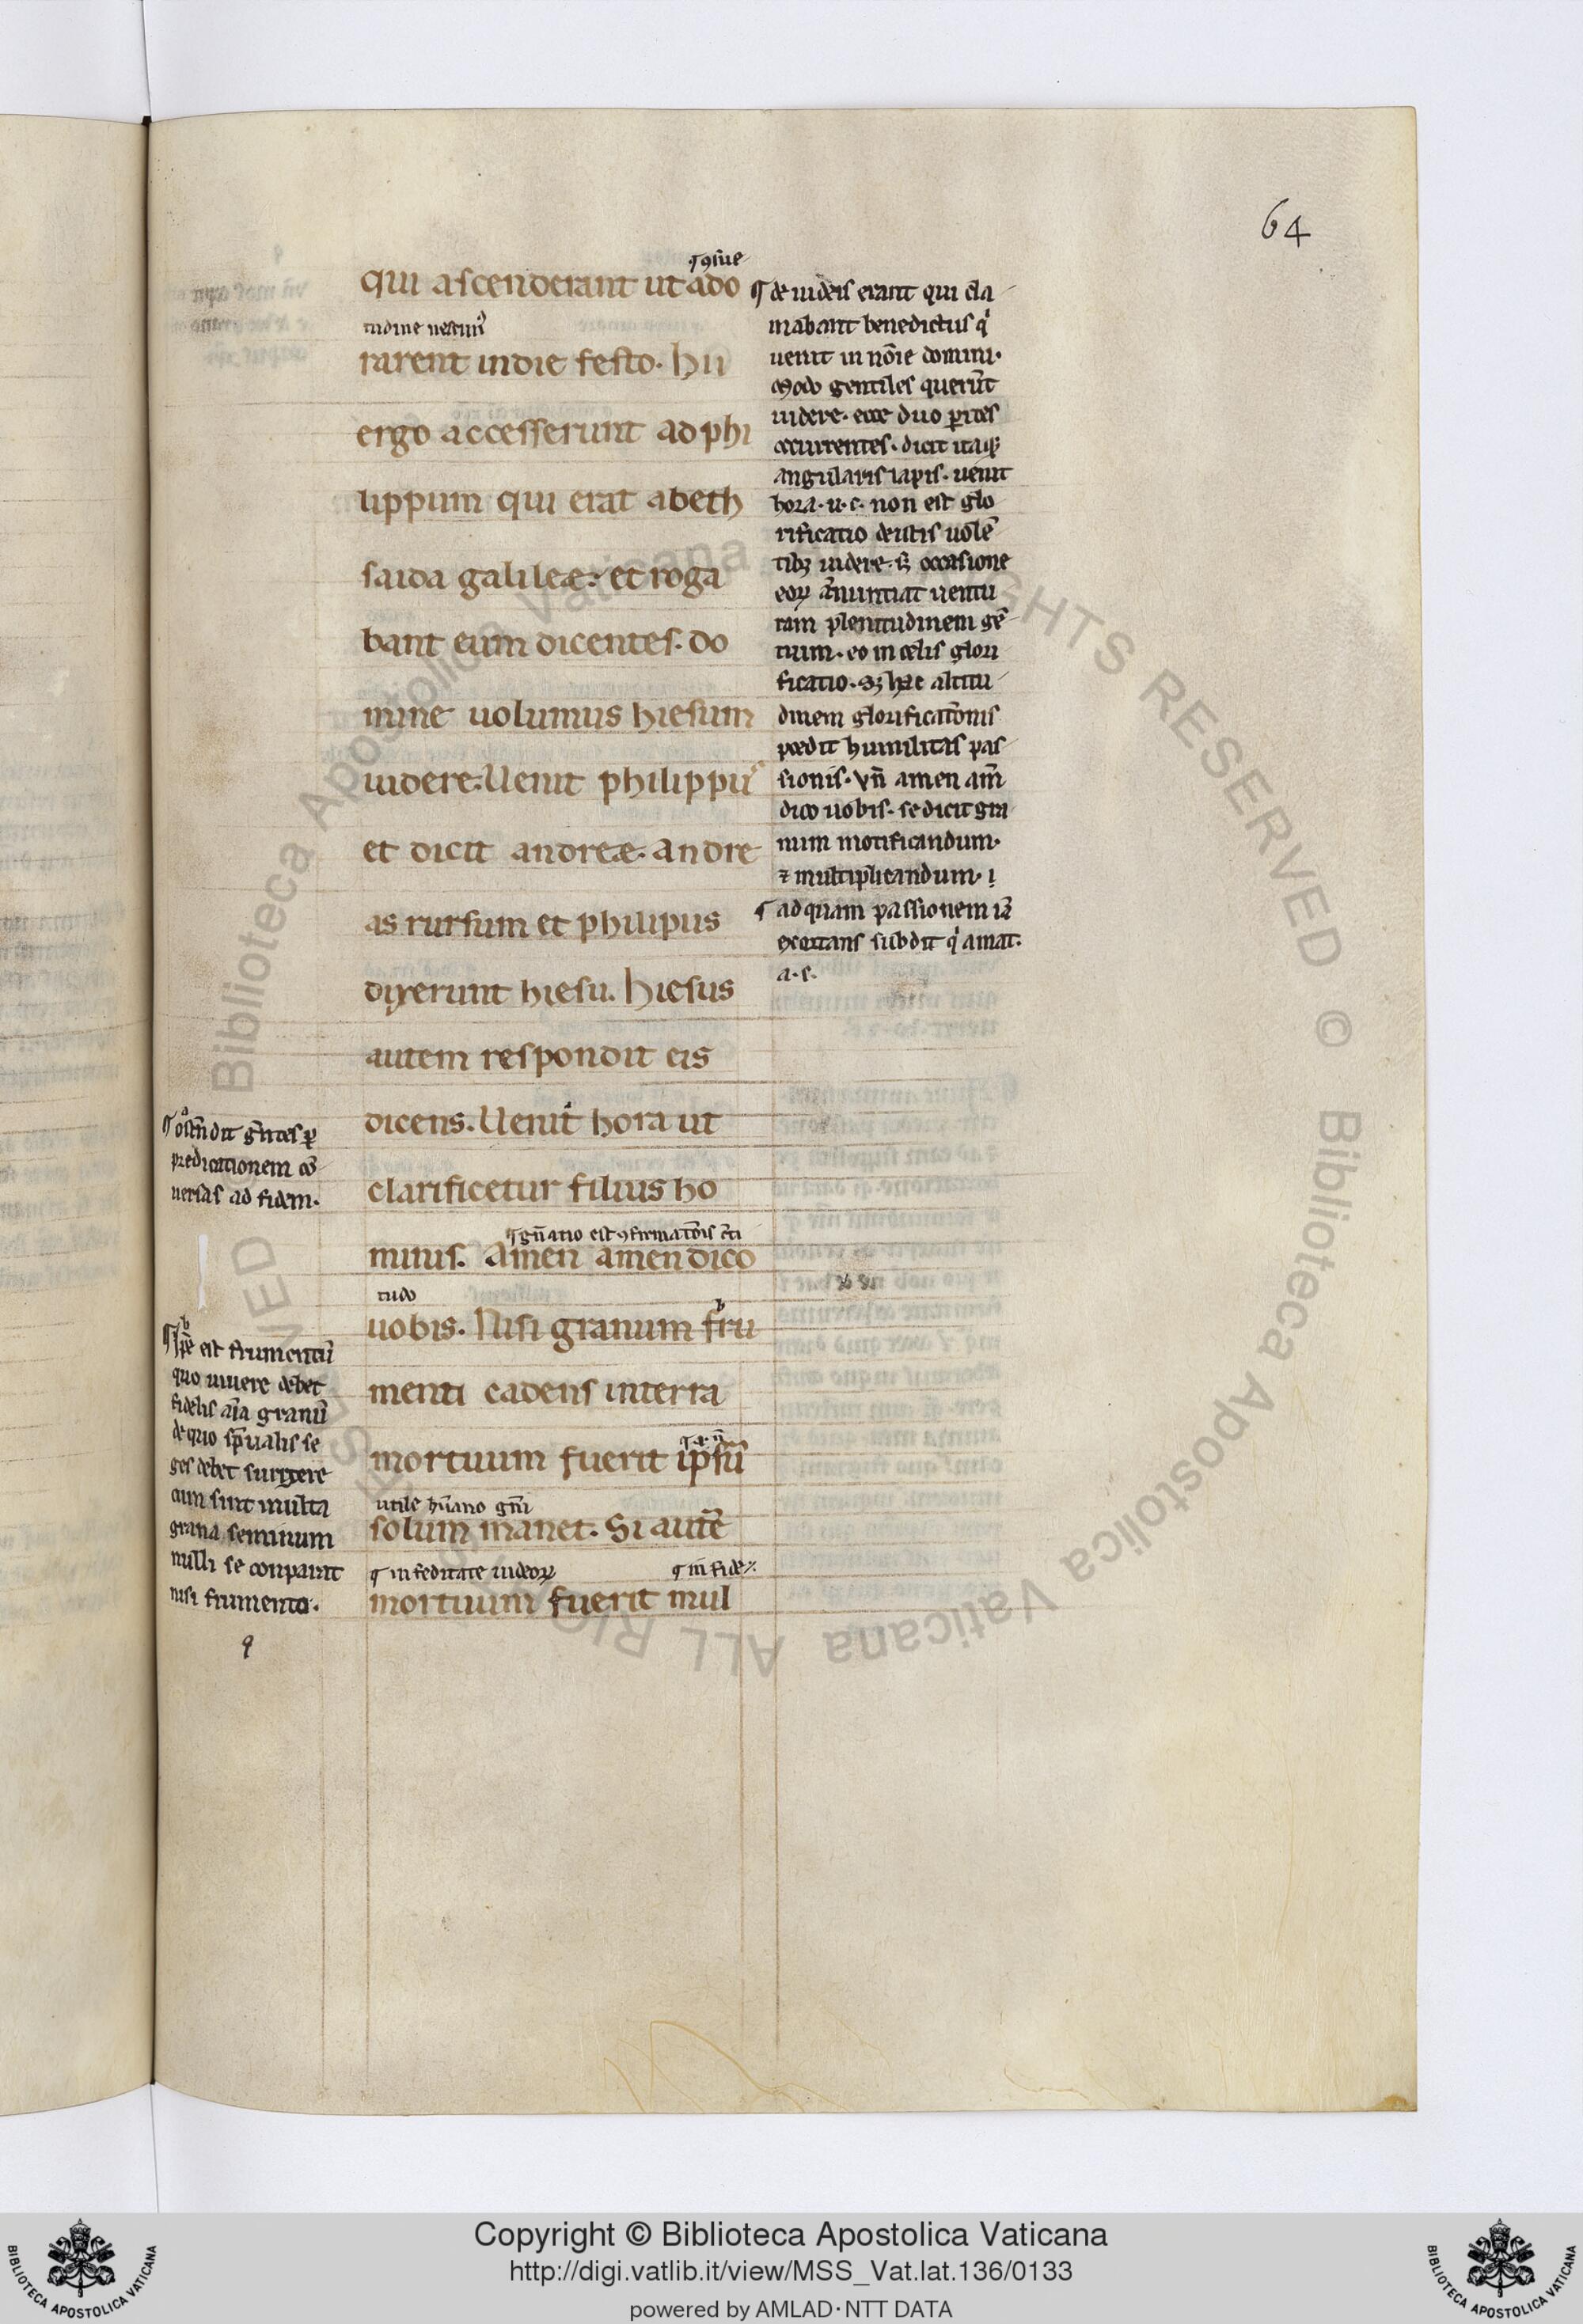 64
¶ ꝯsue
qui ascenderant ut ado
tudine uestiuũ
rarent in die festo. hii
ergo accesserunt ad phi
lippum qui erat a beth
saida galileæ. et roga
bant eum dicentes. do
mine uolumus hiesum
uidere. Uenit philippuˢ
et dicit andreæ. andre
as rursum et philipus
dixerunt hiesu. hiesus
autem respondit eis
dicens. Uenit hora ut
clarificetur filius ho
minis. Amen amen dico
tudo
uobis. Nisi granum fru
menti cadens in terra
mortuum fuerit ipsũ
utile hũano gñi
solum manet. Si autẽ
¶ in feditate iudeoꝝ
¶ in fide
mortuum fuerit mul
¶ de iudeis erant qui cla
mabant benedictus q
uenit in nõie domini.
modo gentiles querũt
uidere. ecce duo parietes
occurrentes. dicit itaqꝫ
angularis lapis. uenit
hora. u. c. non est glo
rificatio de istis uolẽ
tibꝫ uidere. s occasione
eoꝝ ãnuntiat uentu
ram plenitudinem gẽ
tium. eo in celis glori
ficatio. sꝫ hãc altitu
dinem glorificatõnis
p̃cedit humilitas pas
sionis. Vñ amen am̃
dico uobis. se dicit gra
num mortificandum.
⁊ multiplicandum.
¶ ad quam passionem
exortans subdit q amat.
a. s.
¶ oste͂dit ge͂tes ꝑ
predicationem cõ
uersas ad fidem.
b
¶ Ipse est frumentũ
quo uiuere debet
fidelis aĩa granũ
de quo sp̃ualis se
ges debet surgere
cum sint multa
grana seminum
nulli se conparat
nisi frumento.
9
Copyright © Biblioteca Apostolica Vaticana
http://digi.vatlib.it/view/MSS_Vat.lat.136/0133
powered by AMLAD·NTT DATA
BIBLIOTECA APOSTOLICA VATICANA
BIBLIOTECA APOSTOLICA VATICANA